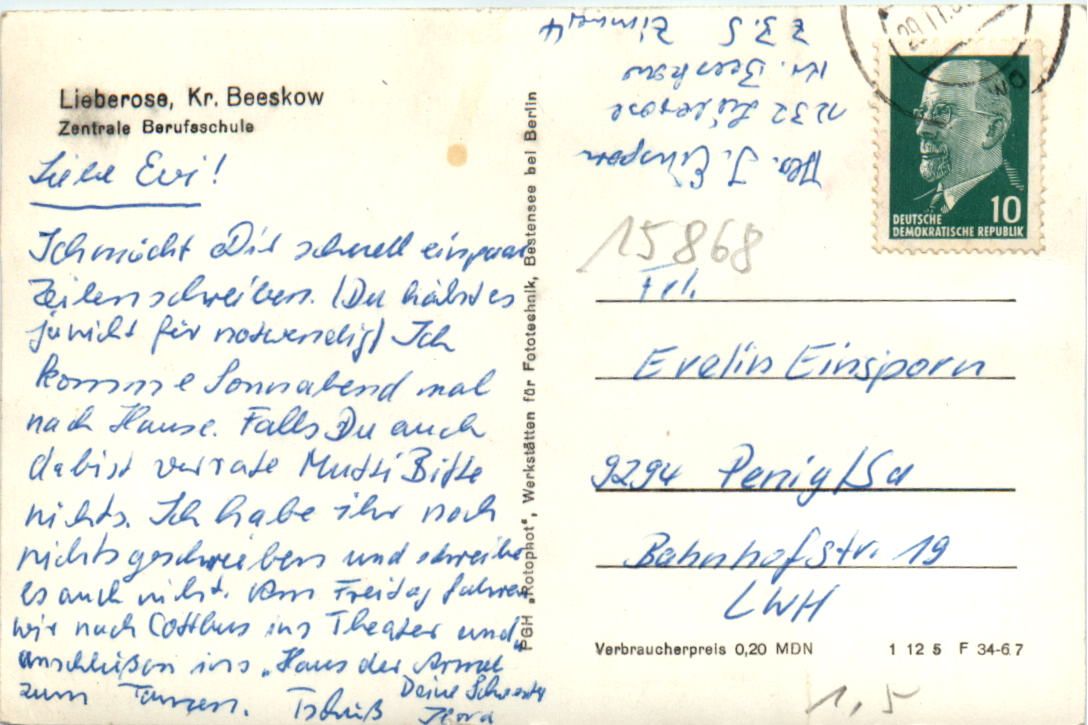 Lieberose, Kr. Beeskow
Zentrale Berufsschule
Liebe Evi!
Ich möcht Dir schnell ein paar
Zeilen schreiben. (Du hälst es
ja nicht für notwendig) Ich
komme Sonnabend mal
nach Hause. Falls Du auch
da bist verrate Mutti Bitte
nichts. Ich habe ihr noch
nichts geschrieben und schreibe
es auch nicht. Am Freitag fahren
wir nach Cottbus ins Theater und
anschlißen ins „Haus der Armee"
zum Tanzen. Tschüß
Deine Schwester
PGH „Rotophot", Werkstätten für Fototechnik, Bestensee bei Berlin
Abs. I. Einsporn
1232 Lieberose
Kr. Beeskow
Z B S
29.11.
DEUTSCHE
DEMOKRATISCHE REPUBLIK
10
15868
Frl.
Evelin Einsporn
9294 Penig/Sa
Bahnhofstr. 19
LWH
Verbraucherpreis 0,20 MDN
1 12 5 F 34-67
1,5